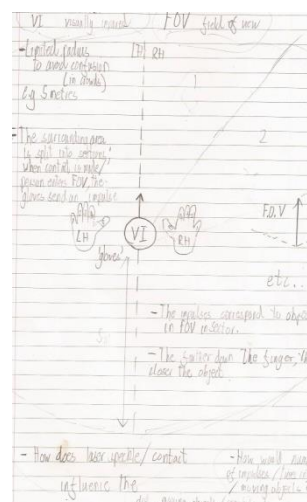 VI visually impaired FOV field of view
- Limited radius
to avoid confusion
(in crowds)
e.g 5 metres
LH RH
1
- The surrounding area
is split into sections,
when contact is made/
person enters FOV, the
gloves send an impulse
2
F.O.V
LH
VI
RH
'gloves'
etc..
- The impulses correspond to
in FOV in sector.
- The further down the finger,
closer the object
5m
- How does laser speckle/contact
influence the
- How would
of impulses
moving objects